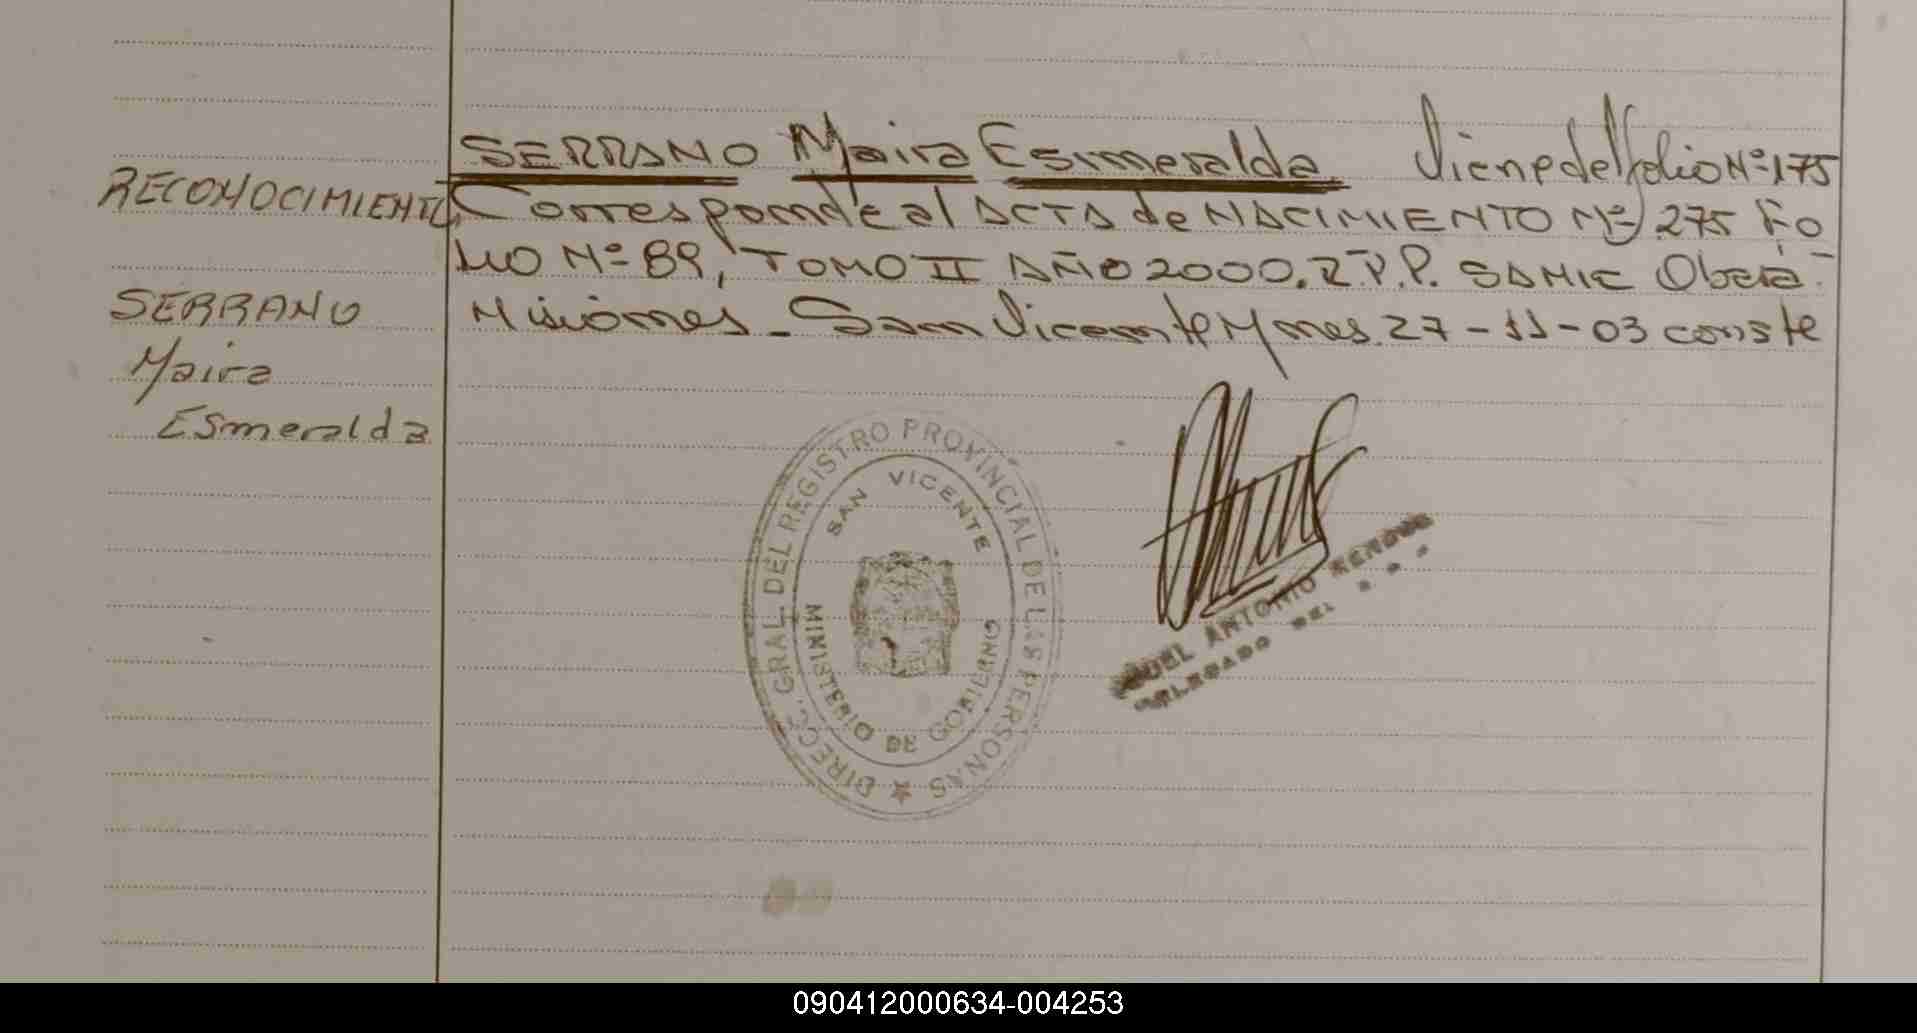 SERRANO Maira Esmeralda. Viene del folio Nº 175
RECONOCIMIENTO
Corresponde al ACTA de NACIMIENTO Nº 275 Fo
LIO Nº 89, TOMO II AÑO 2000. R.P.P. SAMIC Oberá-
Misiones - San Vicente Mnes. 27-11-03 conste
SERRANO
Maira
Esmeralda
DIRECC. GRAL. DEL REGISTRO PROVINCIAL DE LAS PERSONAS
SAN VICENTE
MINISTERIO DE GOBIERNO
ANTONIO
DELEGADO DEL
090412000634-004253